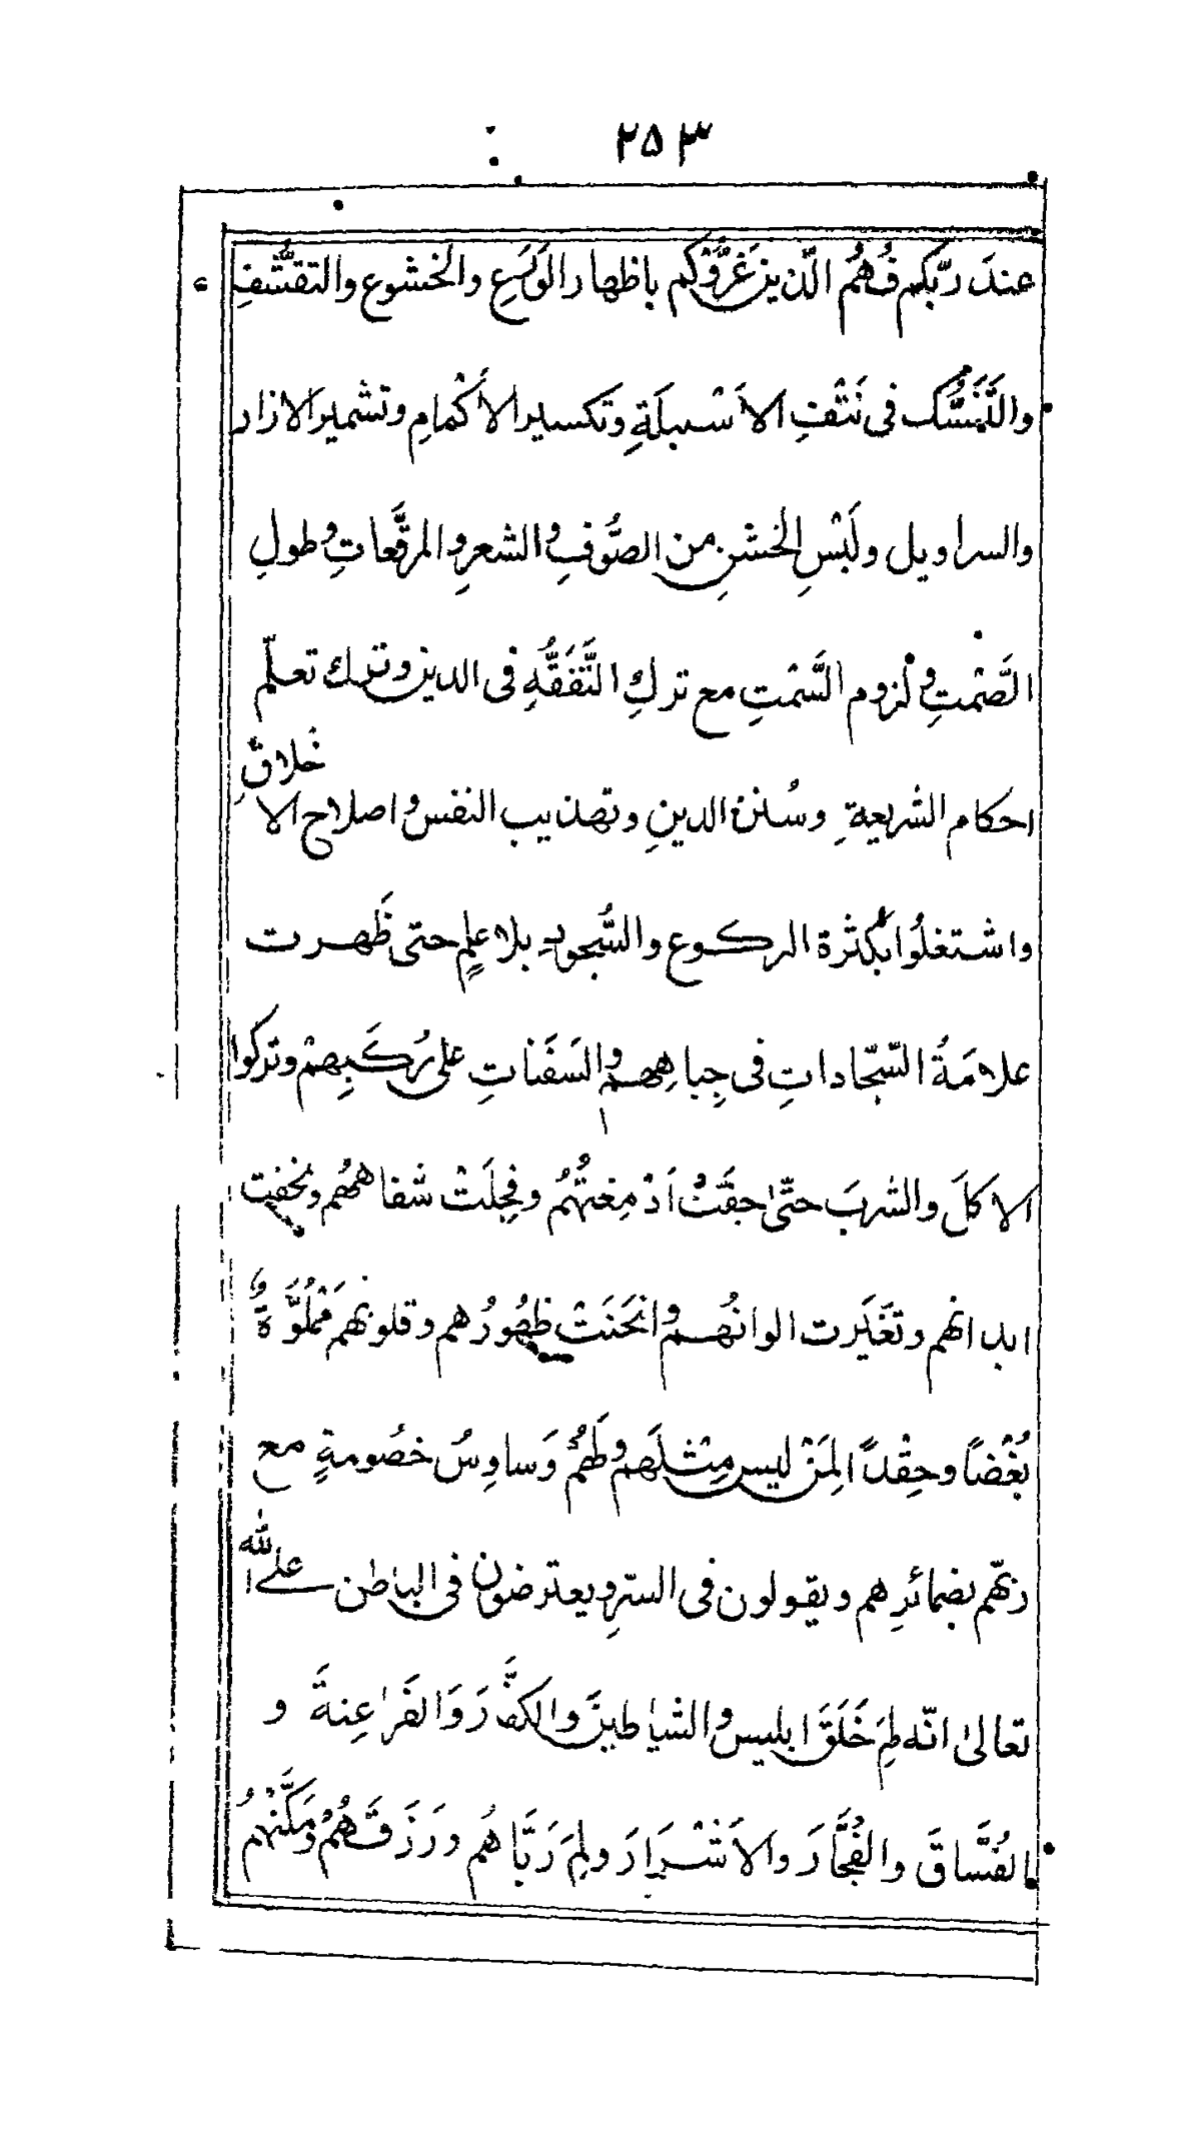 ٢٥٣
عندَ ربّكم فَهُمُ الّذين غَرُّوْكم باظهار الوَرَعِ والخشوع والتقشّفِ
والتَّنَسُّك فى نَتْفِ الاَسْبلَةِ وتكسير الأكْمامِ وتشمير الازار
والسراويل ولَبْسِ الخشنِ من الصُّوفِ والشعرِ والمرقَّعاتِ وطولِ
الصَّمْتِ ولزوم السَّمْتِ مع تركِ التَّفَقُّهِ فى الدين وترك تعلّم
احكام الشريعةِ وسُنن الدينِ وتهذيب النفس واصلاح الاخلاقِ
واشتغلُوا بكثرة الركوع والسُّجود بلا علمٍ حتى ظَهرت
علامَةُ السّجّاداتِ فى جِباهِهم والسَفَناتِ على رُكَبِهمْ وتركوا
الاكلَ والشربَ حتّىٰ جفّتْ اَدْمِغتُهُمْ وفحِلَتْ شفاههُم ونحفت
ابدانهم وتغَيَّرت الوانُهم وانْحَنَتْ ظهُورُهم وقلوبهم مَمْلُوَّةٌ
بُغْضاً وحِقْداً لِمَنْ ليس مِثْلَهم ولَهُمْ وَساوِسُ خصُومةٍ مع
ربّهم بضمائرِهم ويقولون فى السّرِ ويعترضون فى الباطن على الله
تعالىٰ انّه لِمَ خَلَقَ ابليس والشياطينَ والكفّارَ وَالفَراعِنةَ و
الفُسَّاقَ والفُجَّارَ والاَشْرَارَ ولِمَ رَبَّاهُم ورَزَقَهُمْ ومَكَّنهُمْ